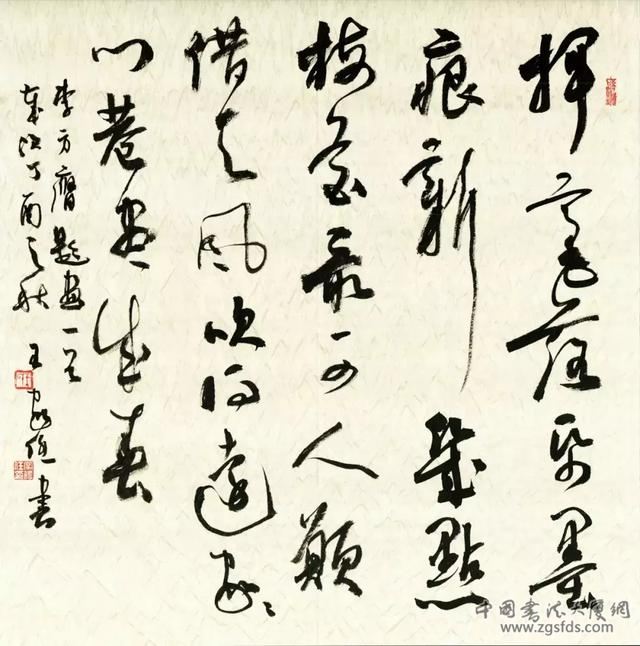 揮毫落紙墨
痕新幾點
梅花最可人願
借天風吹得遠家々
門巷盡成春
李方膺題畫一首
歲次丁酉之秋 王家 書
中國書法大廈網
www.zgsfds.com